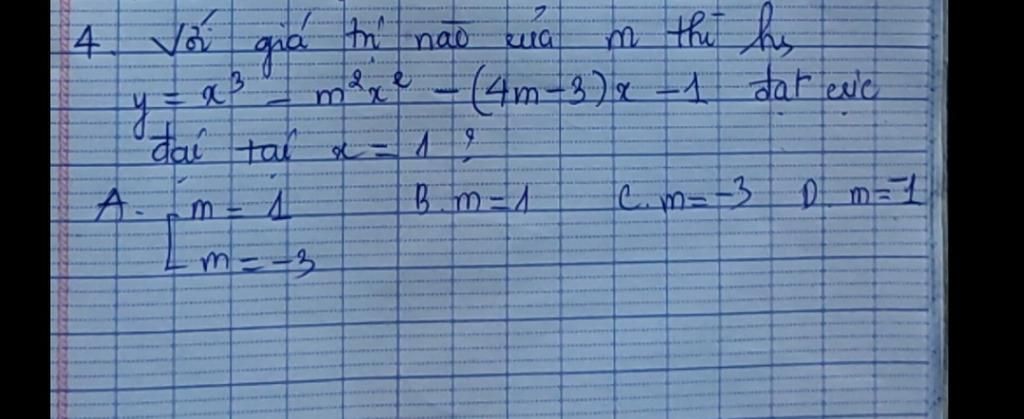 4. Với giá trị nào của m thì hs
y = x³ - m²x² - (4m-3)x - 1 đạt cực
đại tại x = 1 ?
A. [ m = 1 B. m=1 C. m=-3 D. m=-1
m = -3